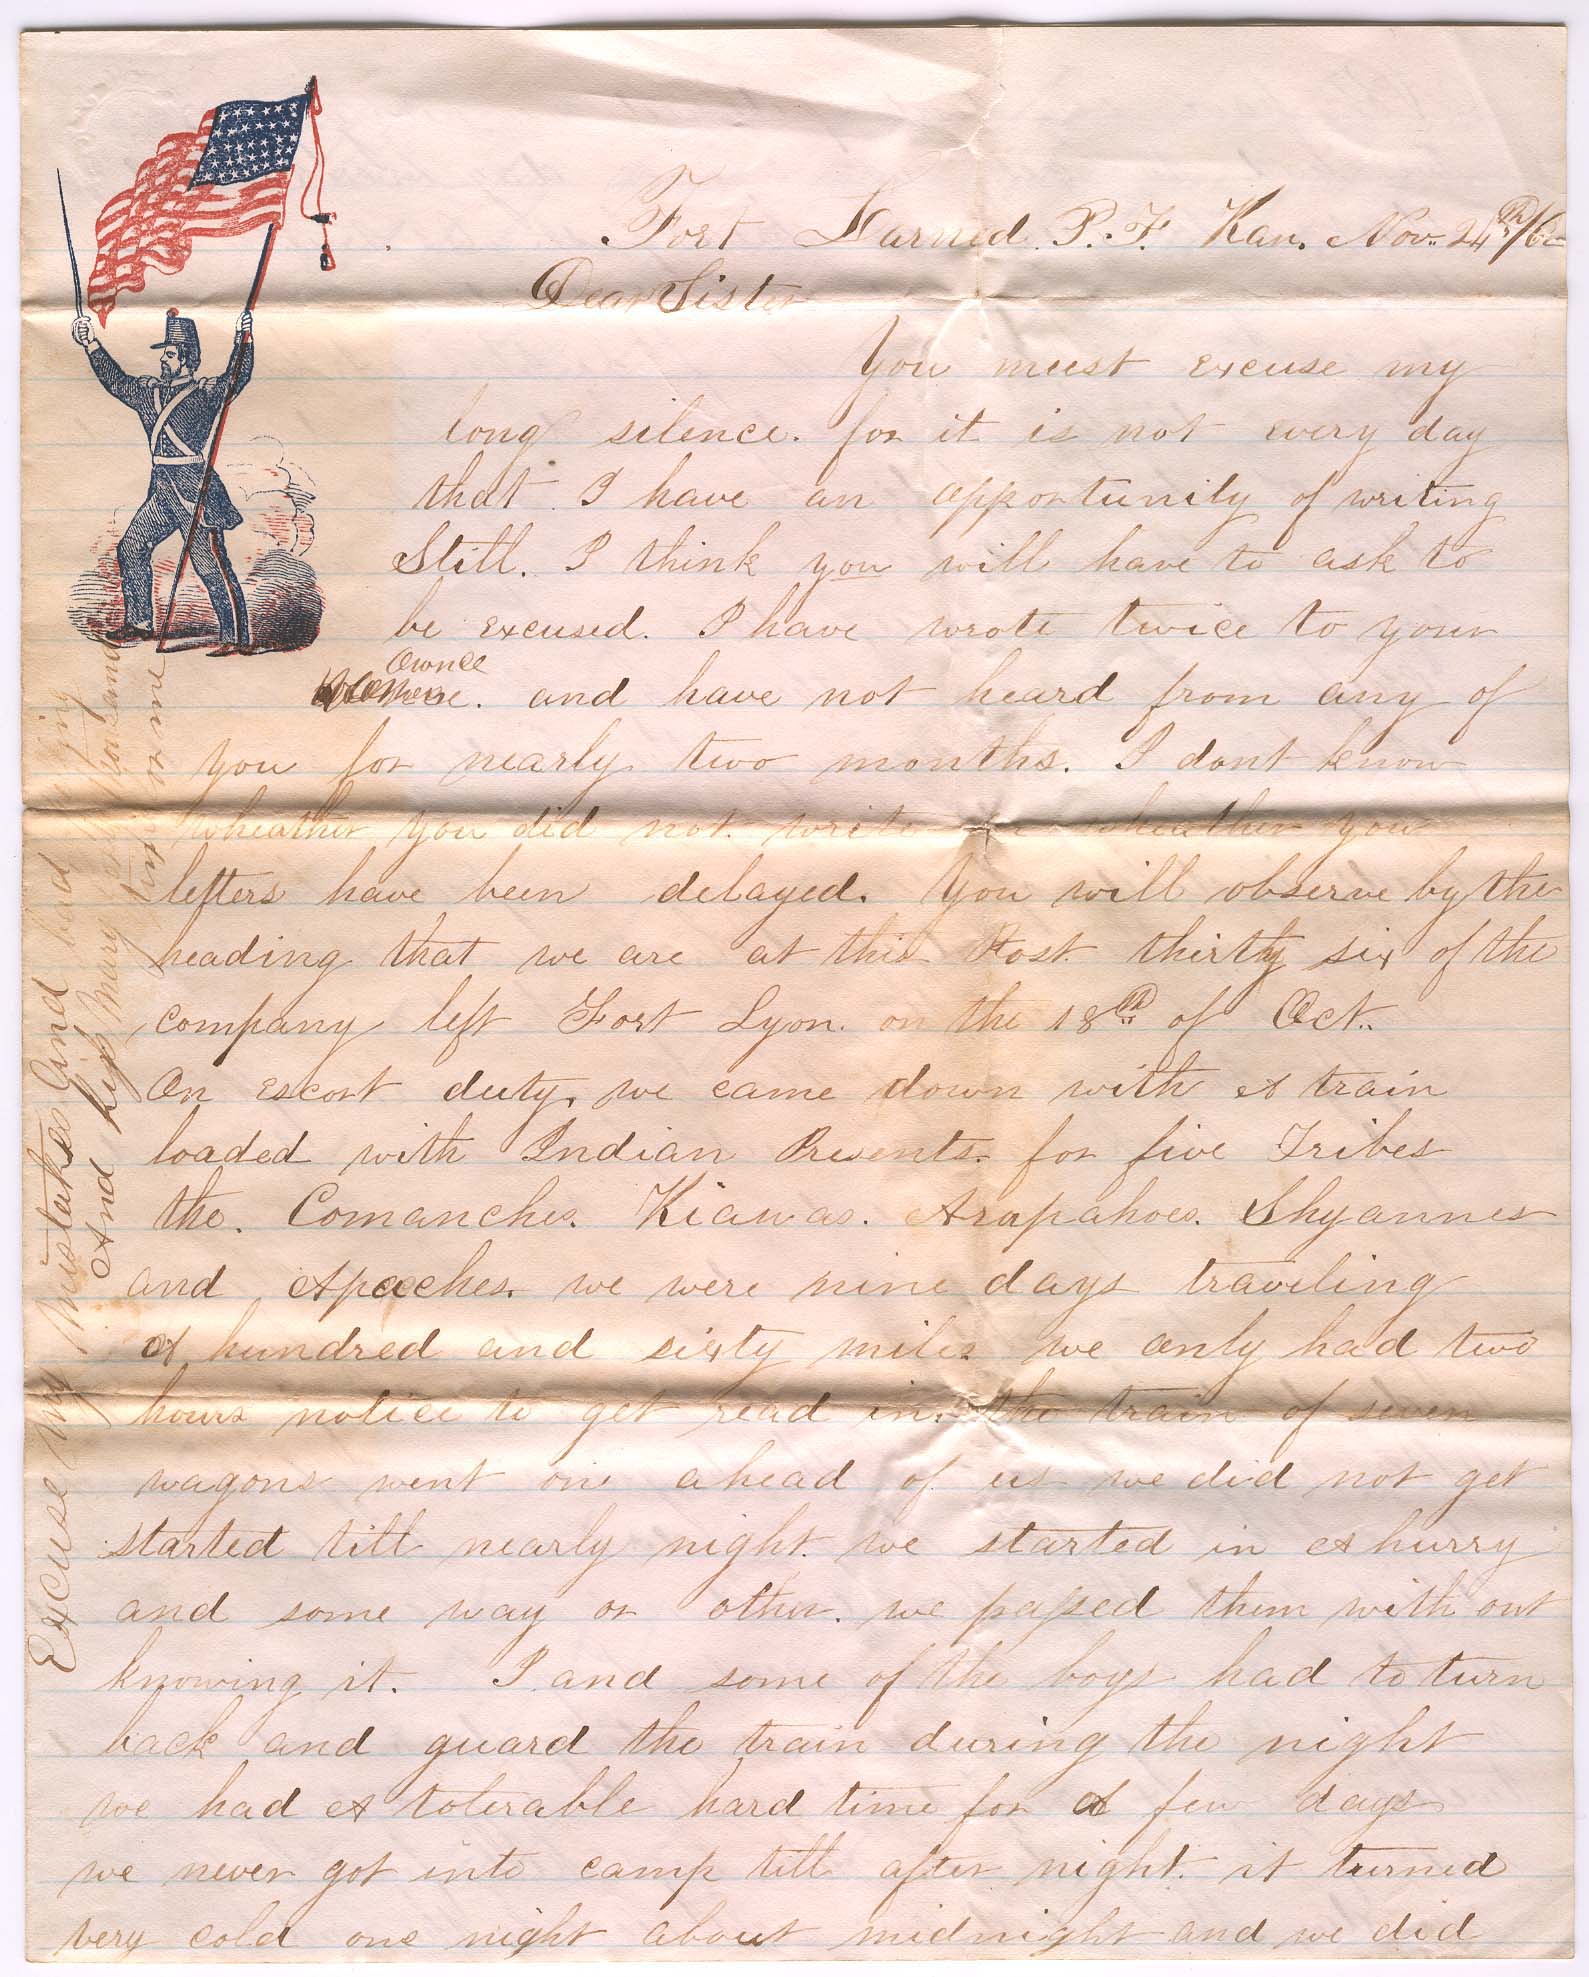 Fort Larned P. F. Kan. Nov. 24th/6
Dear Sister
You must excuse my
long silence. for it is not every day
that I have an opportunity of writing
Still. I think you will have to ask to
be excused. I have wrote twice to your
Ownce
. and have not heard from any of
you for nearly two months. I dont know
wheather you did not write or wheather you
letters have been delayed. You will observe by the
heading that we are at this Post thirty six of the
company left Fort Lyon. on the 18th of Oct.
On escort duty, we came down with A train
loaded with Indian Presents for five Tribes
the. Comanches. Kiawas. Arapahoes. Shyannes
and Apaches. we were nine days traveling
A hundred and sixty miles we only had two
hours notice to get read in. the train of seven
wagons went on ahead of us we did not get
started till nearly night. we started in A hurry
and some way or other. we passed them with out
knowing it. I and some of the boys had to turn
back and guard the train during the night
we had A tolerable hard time for A few days
we never got into camp till after night. it turned
very cold one night about midnight and we did
Excuse my Mistakes And bad
And kiss Mary
for me